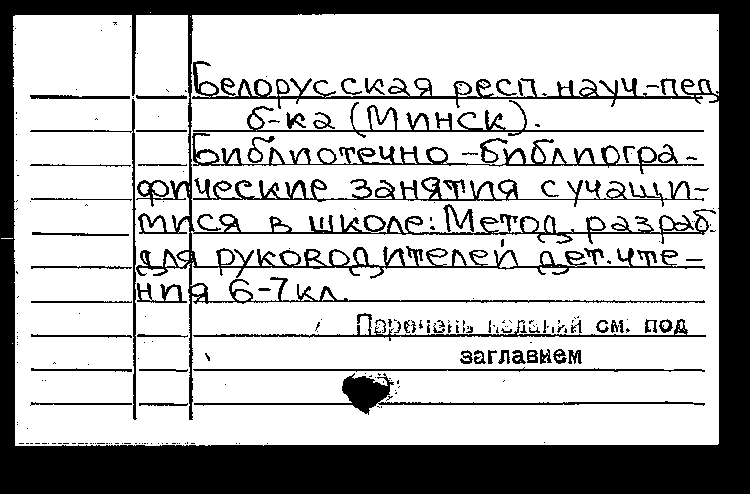 Белорусская респ. науч.-пед.
б-ка (Минск).
Библиотечно-библиогра-
фические занятия с учащи-
мися в школе: Метод. разраб.
для руководителей дет. чте-
ния 6-7 кл.
Перечень изданий см. под
заглавием